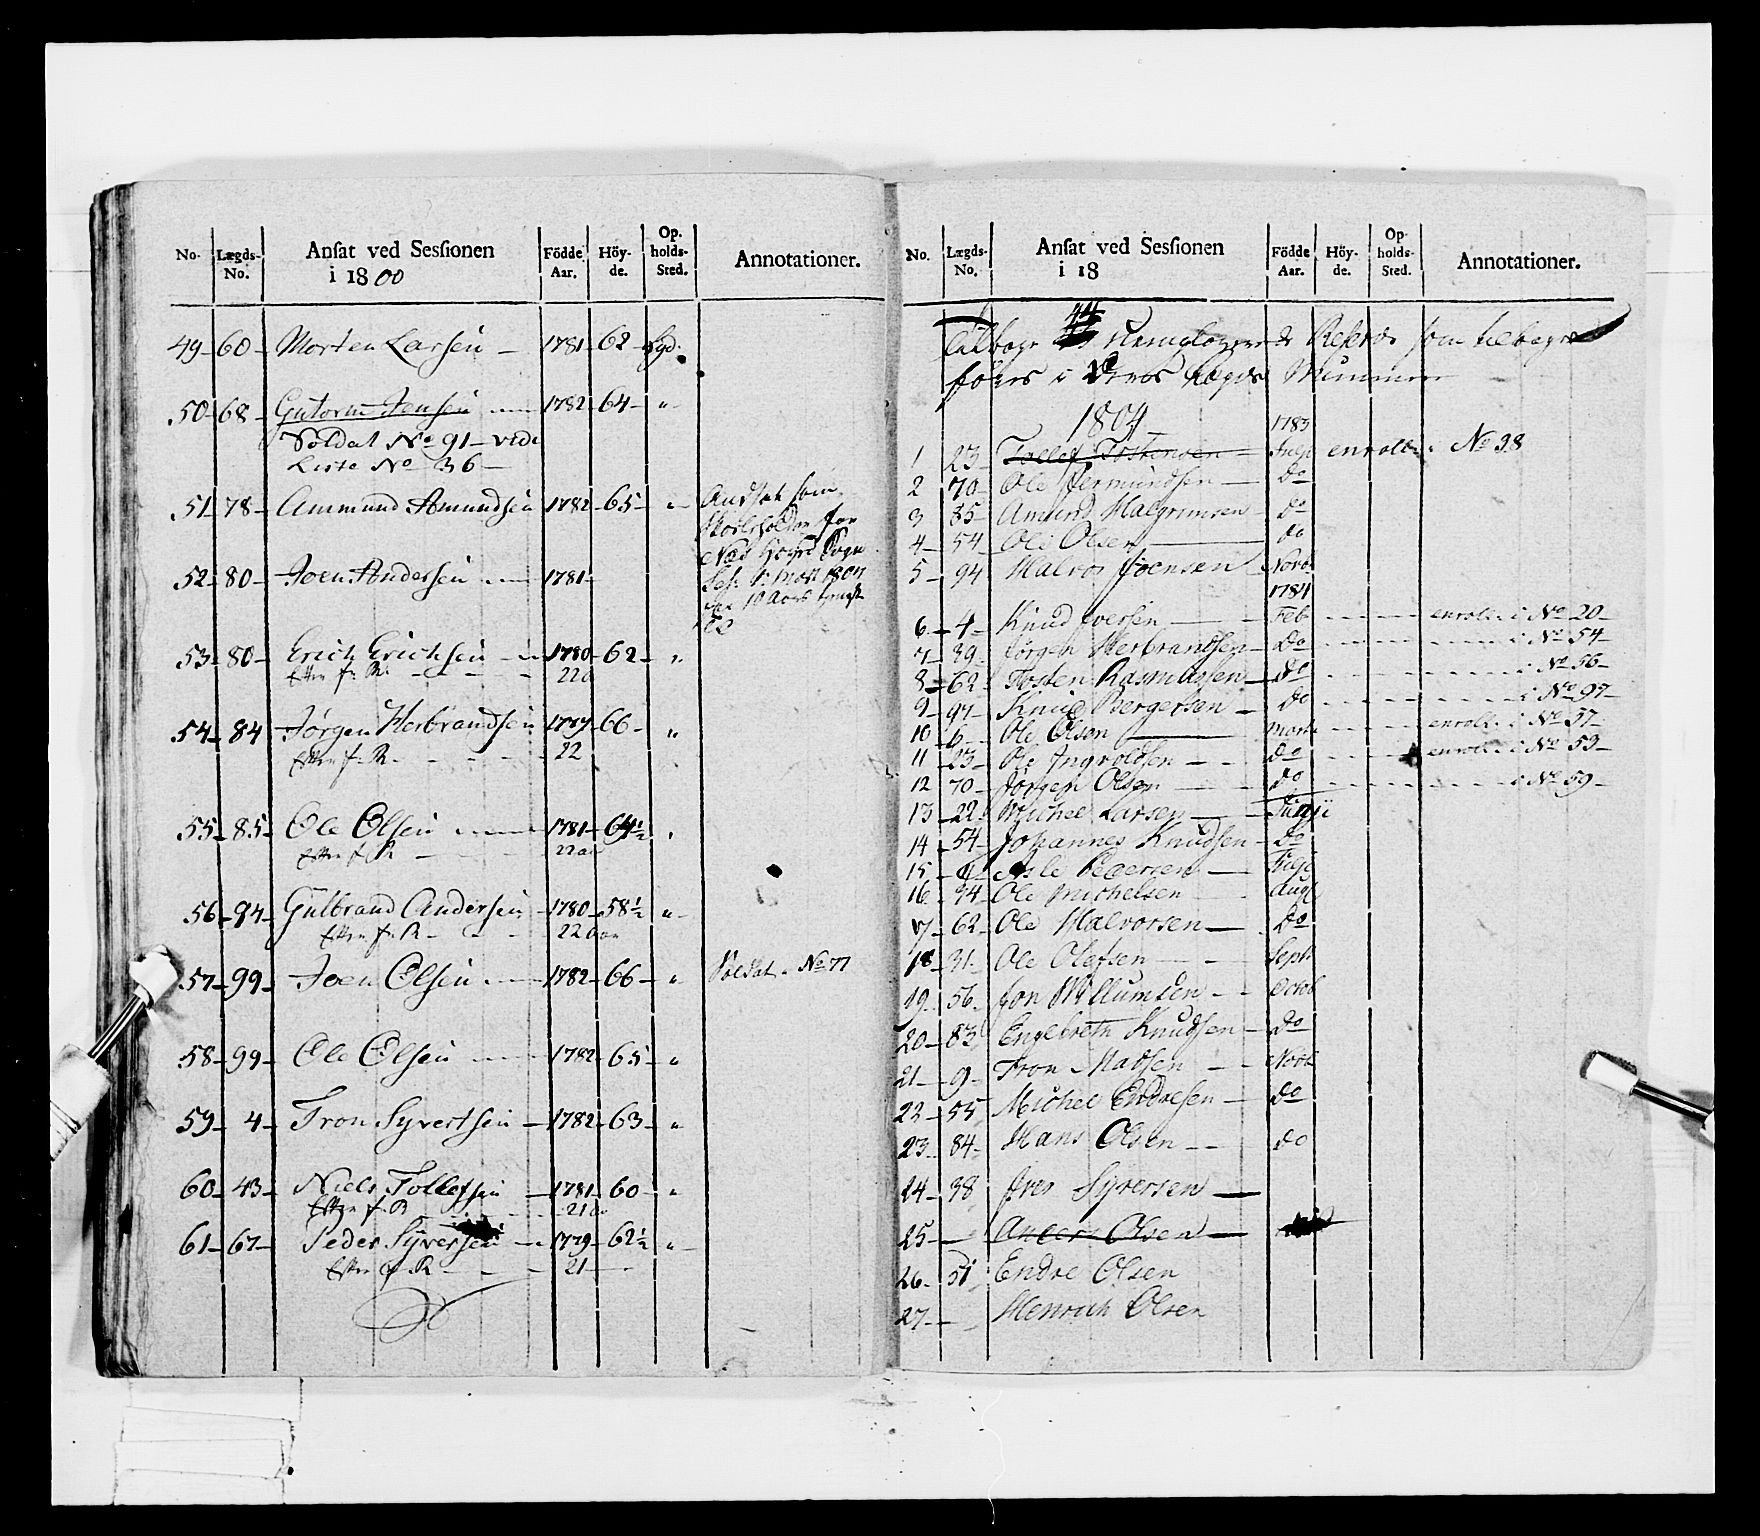 No. Lægds-No. Ansat ved Sessionen i 1800 Födde Aar. Höy-de. Op-holds-Sted. Annotationer.
49 - 60 - Morten Larsen - 1781 - 62 -
50 - 68 - Gutorm Jensen 1782 - 64 - "
Soldat No 91 - vide
Liste No 36 -
51 - 78 - Ammund Amundsen 1782 - 65 - " Andsat som
Skoleholder for
Sogn
52 - 80 - Joen Andersen 1781 -
1807
10 Aars
53 - 80 - Erich Erichsen 1780 - 62 - "
Efter f. R. 22
54 - 84 Jørgen Herbrandsen 1777 - 66 - "
Efter f. R. 22
55 - 85 - Ole Olsen 1781 - 64½ "
Efter f. R 22
56 - 94 - Gulbrand Andersen 1780 - 58½ "
Efter f. R 22 Aar
57 - 99 - Joen Olsen 1782 - 66 - " Soldat No 77
58 - 99 - Ole Olsen 1782 - 65 - "
59 - 4 - Tron Syvertsen - 1782 - 63 - "
60 - 43 - Niels Tollefsen - 1781 - 60 - "
Efter f. R 21
61 - 67 - Peder Syversen 1779 - 62½ "
Efter f. R 21
No. Lægds-No. Ansat ved Sessionen i 18 Födde Aar. Höy-de. Op-holds-Sted. Annotationer.
som tilbage
føres i Deres Lægds Nummer
1804
1783
1 23 - Tollef Tostensen enroll: No 38
2 70 - Ole Jermundsen - Do
3 85 - Amund Halgrimsen Do
4 - 54 - Ole Olsen Do
5 - 94 Halvor Joensen Novb
1784
6 - 4 - Knud Iversen Feb enroll: i No 20 -
7 - 39 - Jørgen Herbrandsen - Do i No 54 -
8 - 62 - Tosten Rasmussen - Do i No 56 -
9 - 97 - Knud Bergersen - Do i No 97 -
10 - 6 - Ole Olson Marti enroll: i No 57 -
11 - 23 - Ole Ingvoldsen - Do enroll: i No 53 -
12 70 - Jørgen Olsen Do i No 59 -
13 - 22 - Michel Larsen - Junii
14 - 54 - Johannes Knudsen - Do
15 - Asle Pedersen -
16 - 94 - Ole Michelsen Aug
17 - 62 - Ole Halvorsen - Do
18 - 31 - Ole Olefsen Septb
19 - 56 - Jon Willumsen - Octob
20 - 83 Engebreth Knudsen - Do
21 - 9 - Tron Madsen Novb
22 - 55 Michel Endresen - Do
23 - 84 - Hans Olsen - Do
24 - 38 Iver Syversen -
25 - Anders Olsen -
26 - 51 Endre Olsen
27 - Henrich Olsen